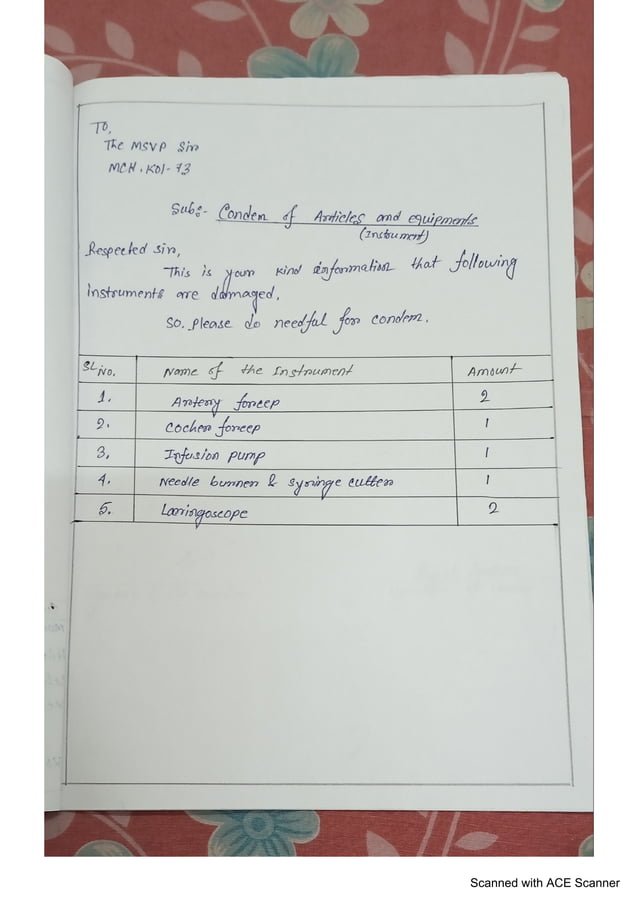 To,
The MSVP Sir
MCH, KOl-73
Sub:- Condem of Articles and equipments
(Instrument)
Respected Sir,
This is your kind information that following
instruments are damaged.
So. Please do needful for condem.
SL No. Name of the Instrument Amount
1. Artery forcep 2
2. Cocher forcep 1
3. Infusion pump 1
4. Needle burner & Syringe cutter 1
5. Laringoscope 2
Scanned with ACE Scanner